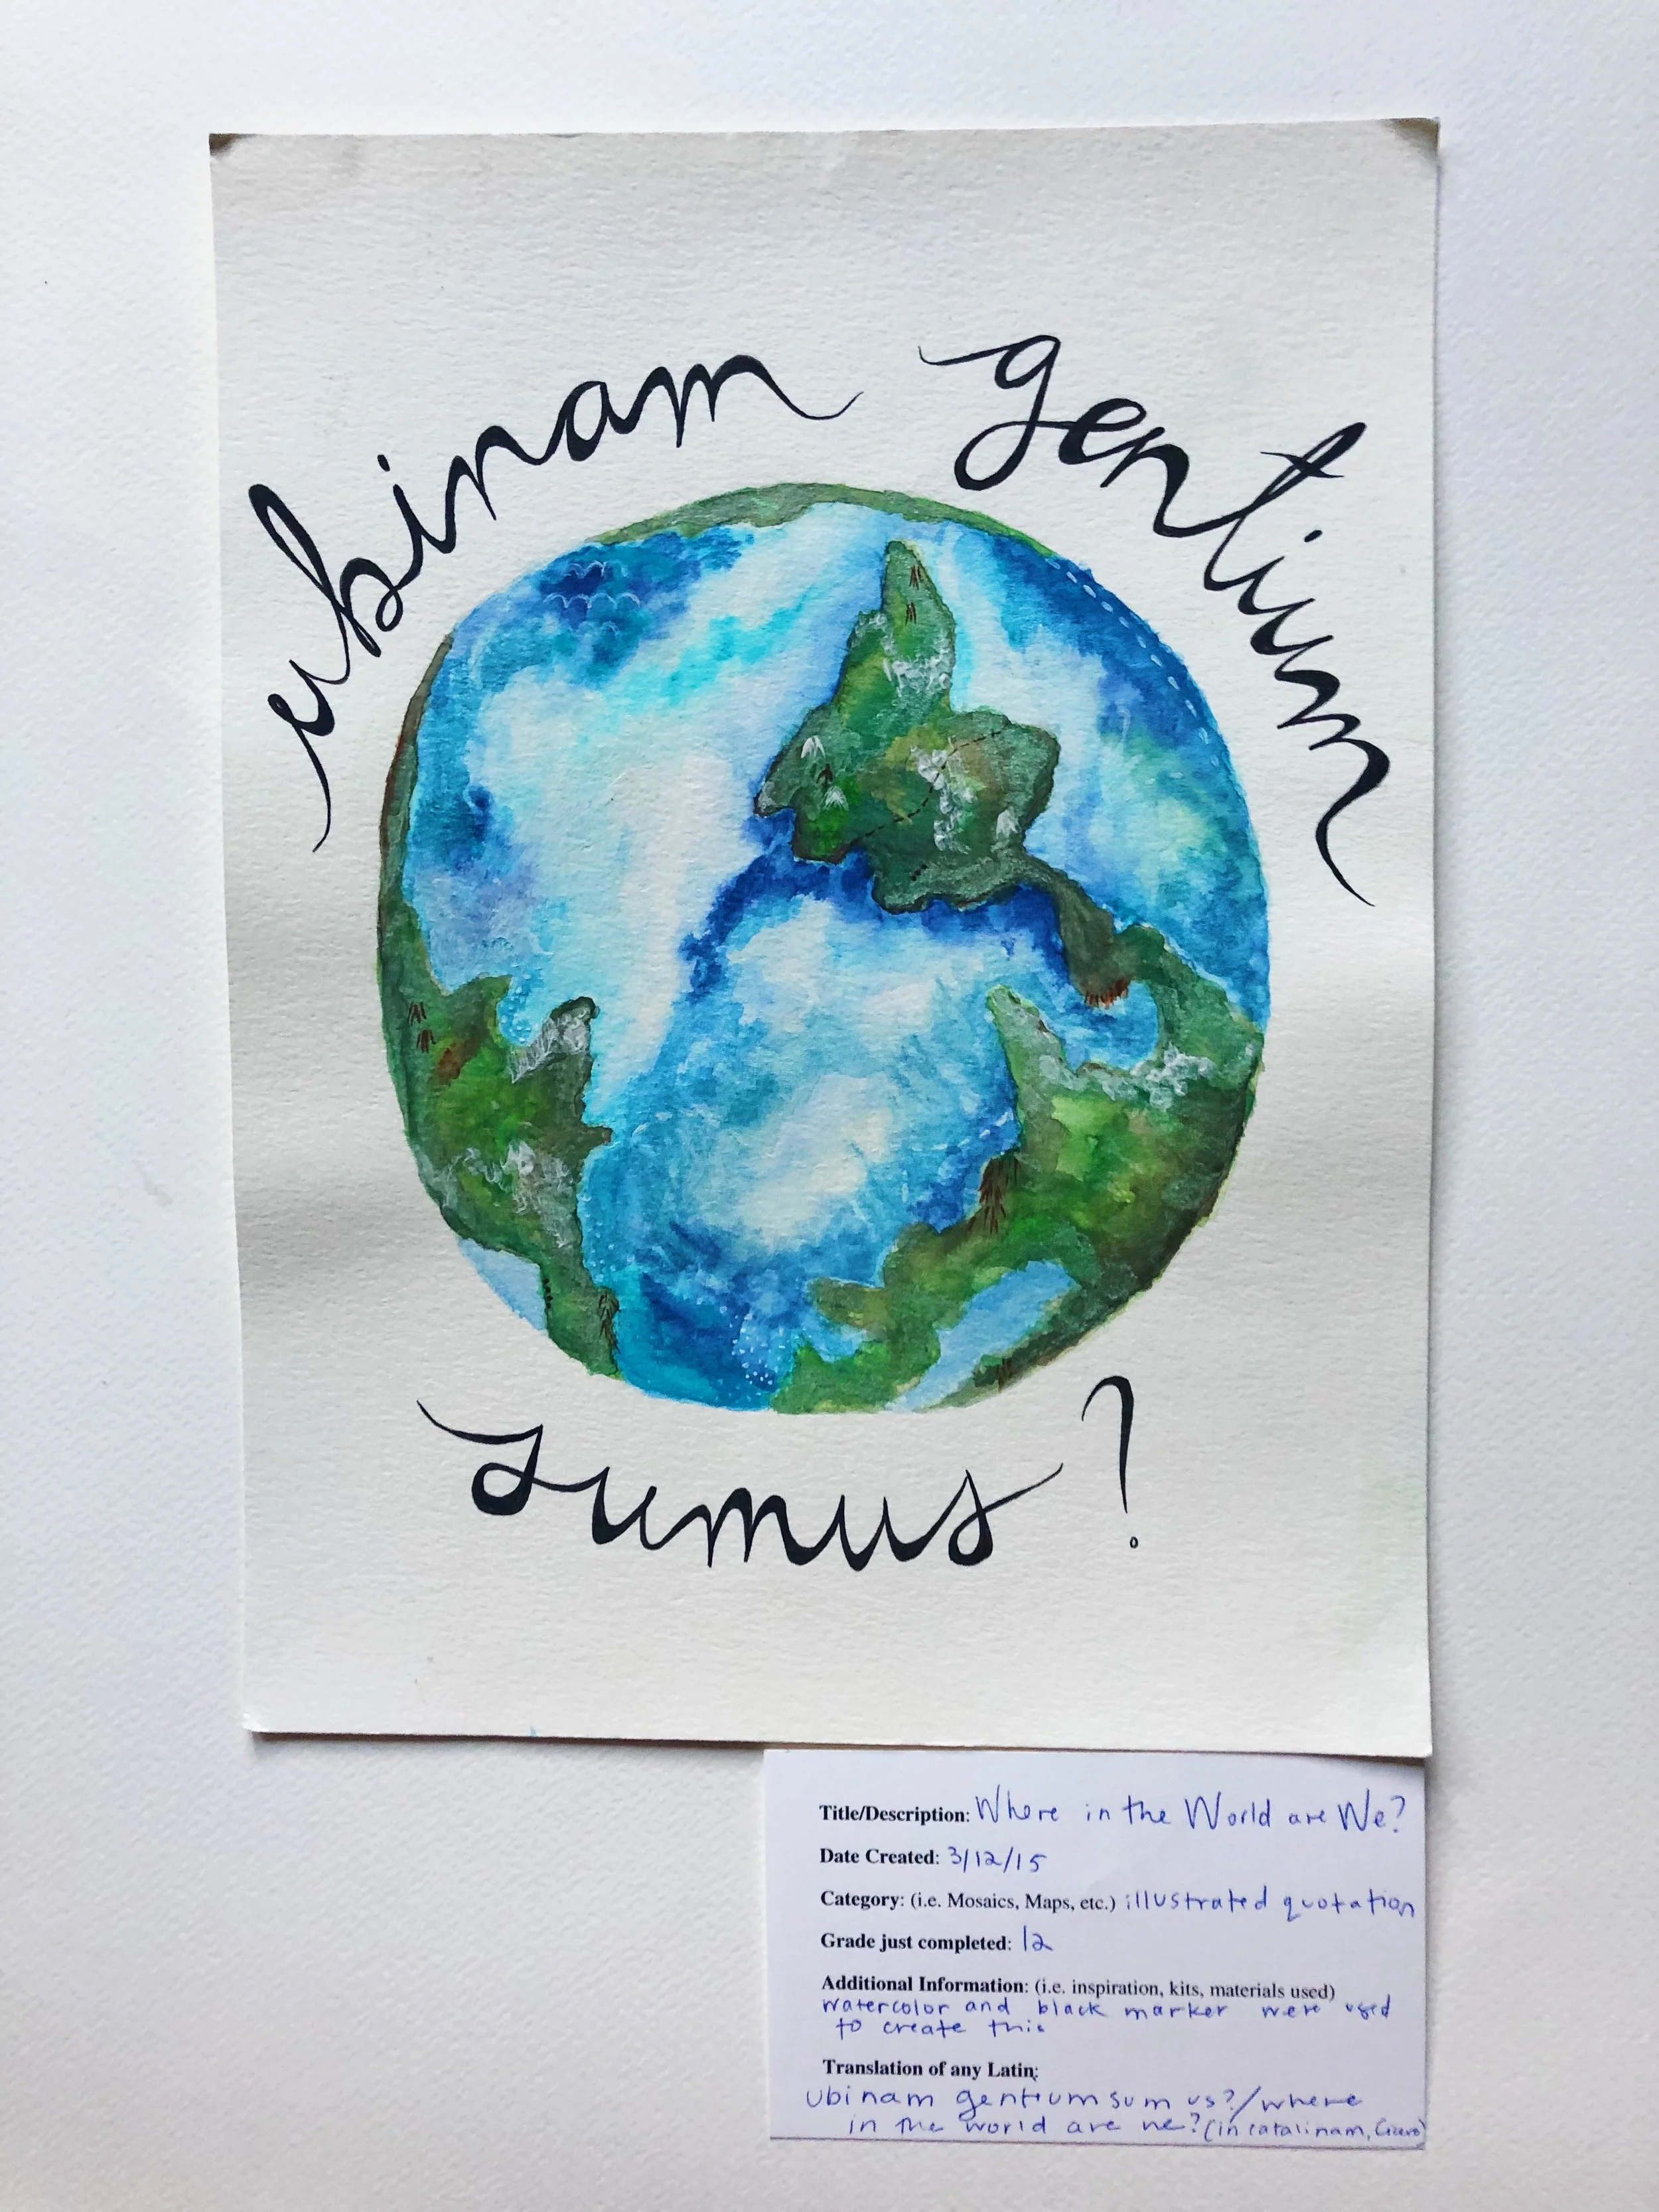 ubinam gentium
sumus?
Title/Description: Where in the World are We?
Date Created: 3/12/15
Category: (i.e. Mosaics, Maps, etc.) illustrated quotation
Grade just completed: 12
Additional Information: (i.e. inspiration, kits, materials used)
watercolor and black marker were used
to create this
Translation of any Latin:
Ubinam gentium sumus?/where
in the world are we? (in catalinam, Cicero)